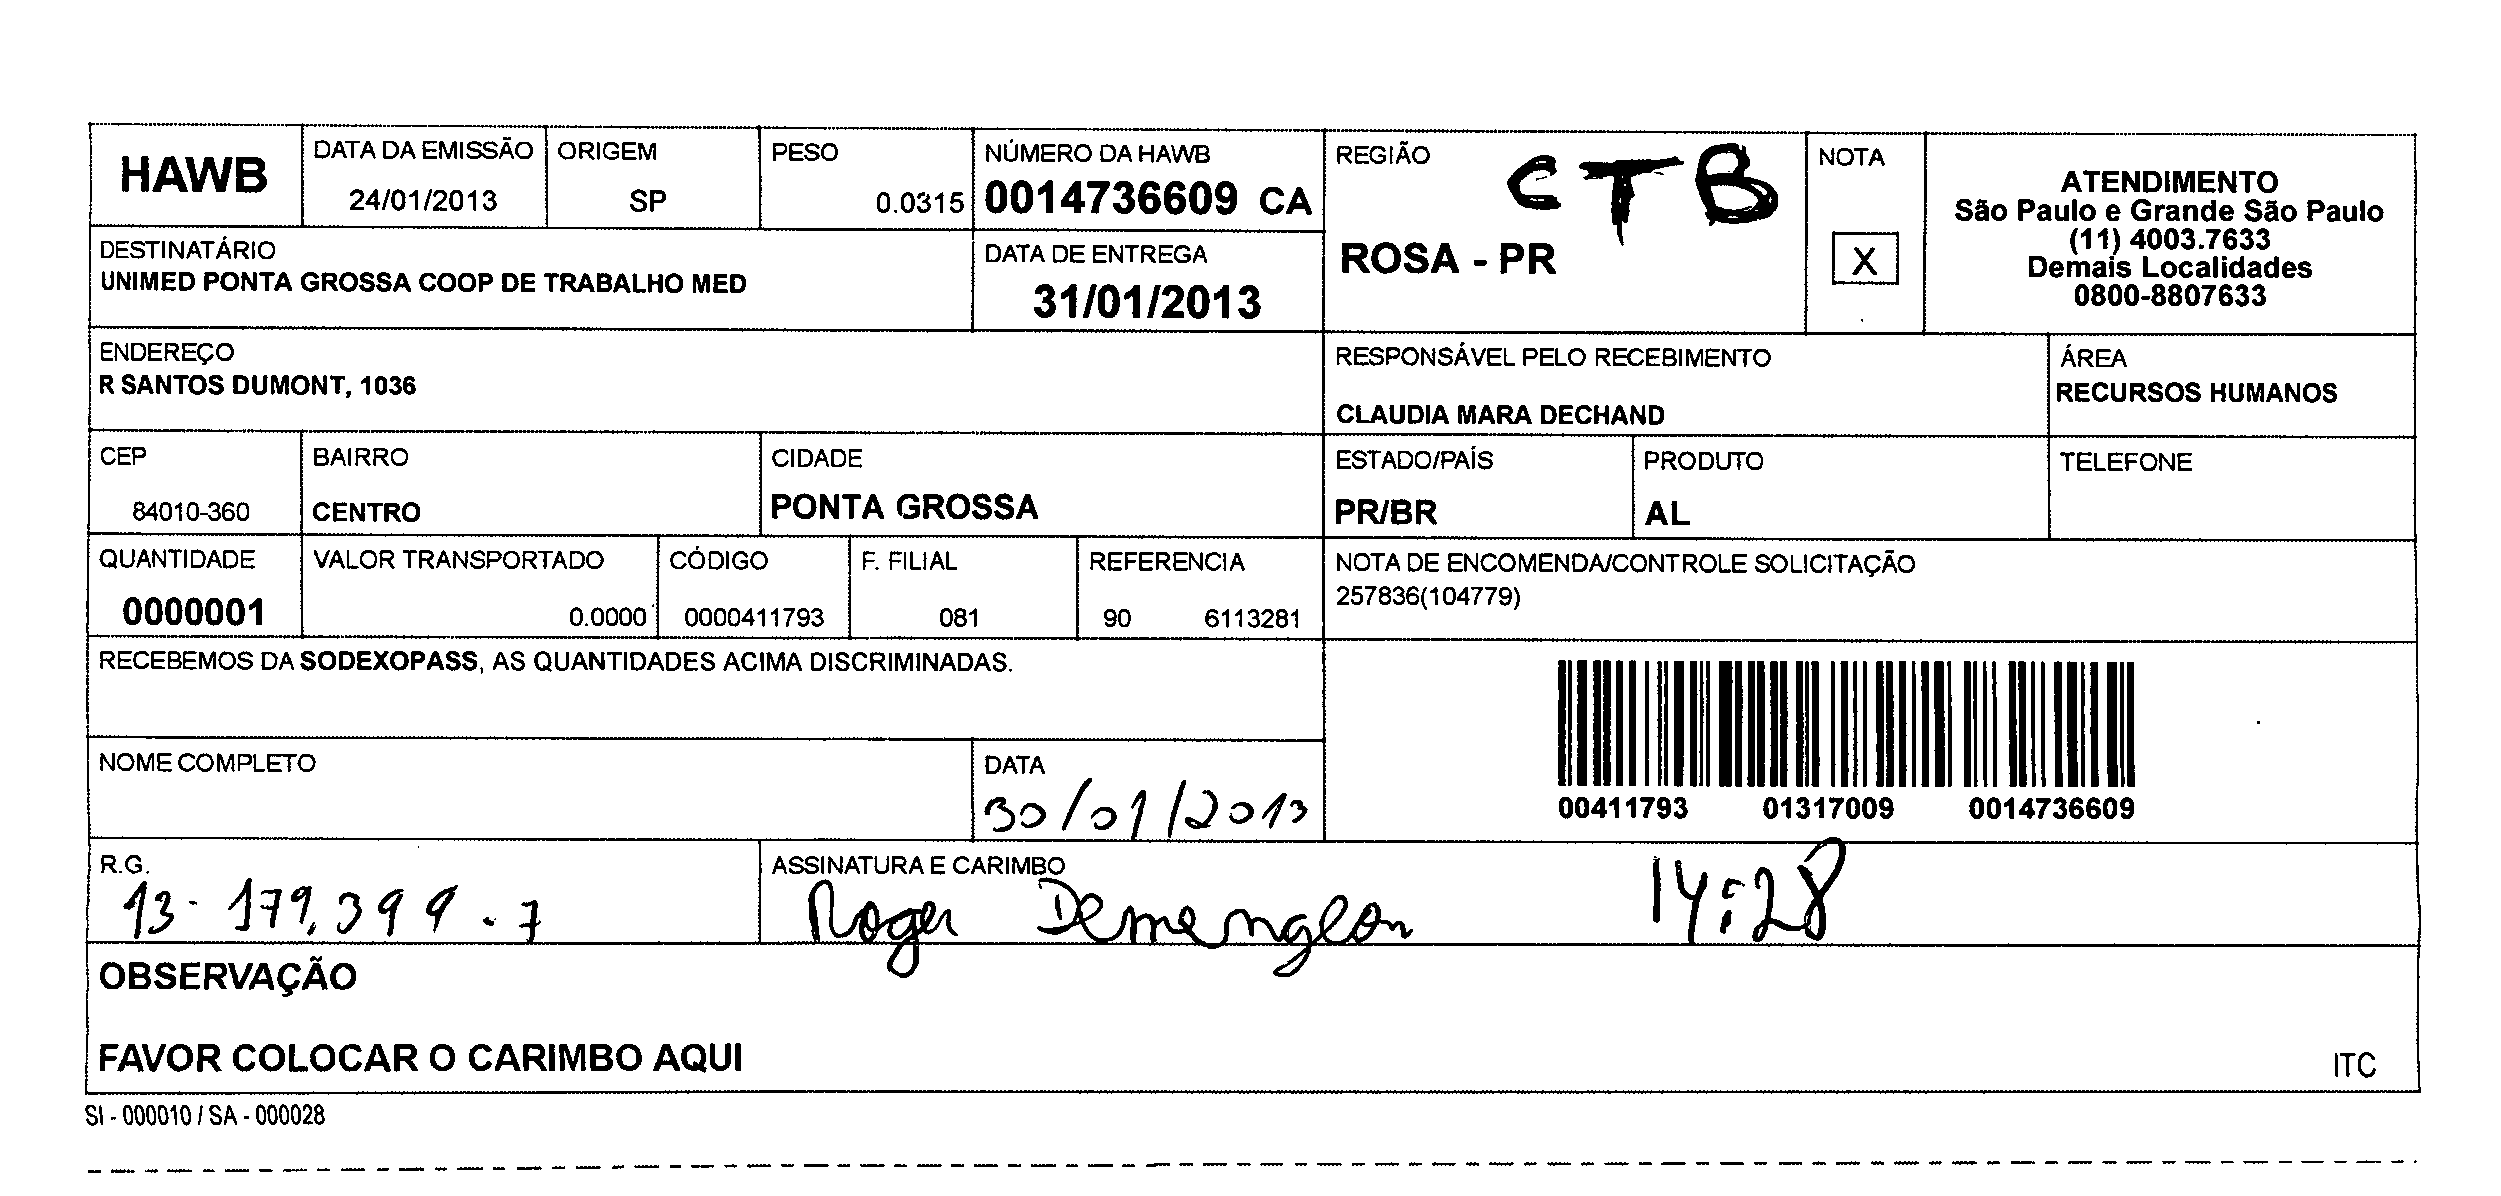 HAWB
DATA DA EMISSÃO
24/01/2013
ORIGEM
SP
PESO
0.0315
NÚMERO DA HAWB
0014736609 CA
REGIÃO
CTB
ROSA - PR
NOTA
X
ATENDIMENTO
São Paulo e Grande São Paulo
(11) 4003.7633
Demais Localidades
0800-8807633
DESTINATÁRIO
UNIMED PONTA GROSSA COOP DE TRABALHO MED
DATA DE ENTREGA
31/01/2013
ENDEREÇO
R SANTOS DUMONT, 1036
RESPONSÁVEL PELO RECEBIMENTO
CLAUDIA MARA DECHAND
ÁREA
RECURSOS HUMANOS
CEP
84010-360
BAIRRO
CENTRO
CIDADE
PONTA GROSSA
ESTADO/PAÍS
PR/BR
PRODUTO
AL
TELEFONE
QUANTIDADE
0000001
VALOR TRANSPORTADO
0.0000
CÓDIGO
0000411793
F. FILIAL
081
REFERENCIA
90 6113281
NOTA DE ENCOMENDA/CONTROLE SOLICITAÇÃO
257836(104779)
RECEBEMOS DA SODEXOPASS, AS QUANTIDADES ACIMA DISCRIMINADAS.
00411793 01317009 0014736609
NOME COMPLETO
DATA
30/01/2013
R.G.
13.179.399.7
ASSINATURA E CARIMBO
Roger Demenglon
14:28
OBSERVAÇÃO
FAVOR COLOCAR O CARIMBO AQUI
ITC
SI - 000010 / SA - 000028